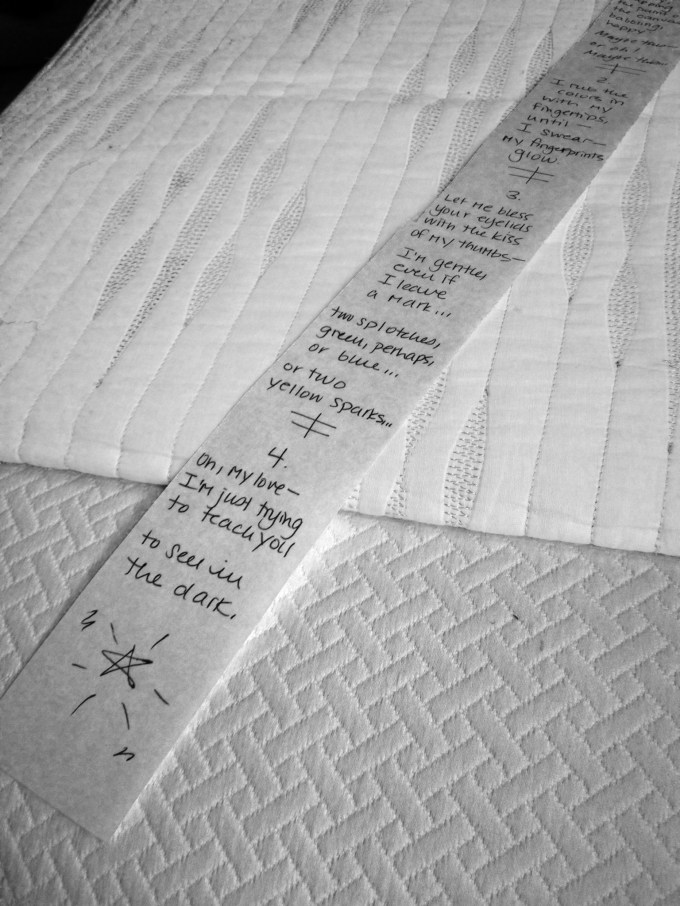 the canvas
babbling,
happy
or oh!
2.
I rub the
colors in
with my
fingertips,
until—
I swear—
my fingerprints
glow.
3.
Let me bless
your eyelids
with the kiss
of my thumbs—
I'm gentle,
even if
I leave
a mark...
two splotches,
green, perhaps,
or blue...
or two
yellow sparks...
4.
Oh, my love—
I'm just trying
to teach you
to see in
the dark.